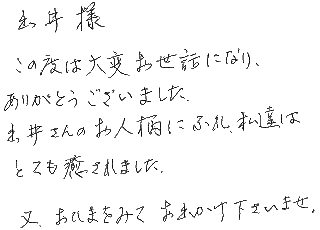 出井様
この度は大変お世話になり、
ありがとうございました。
出井さんのお人柄にふれ、私達は
とても癒されました。
又、おひまをみて お出かけ下さいませ。